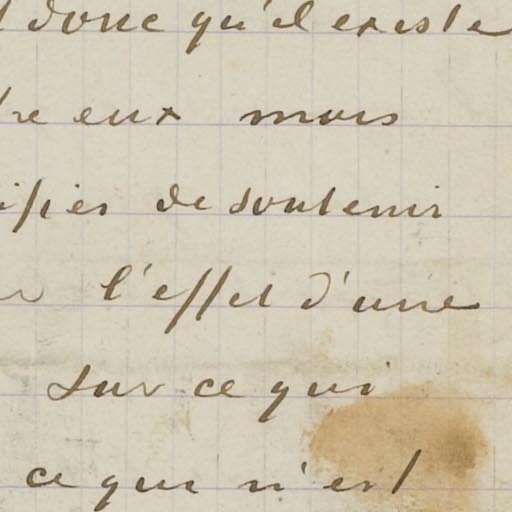 donc qu'il existe
eux mais
de soutenir
l'effet d'une
sur ce qui
ce qui n'est